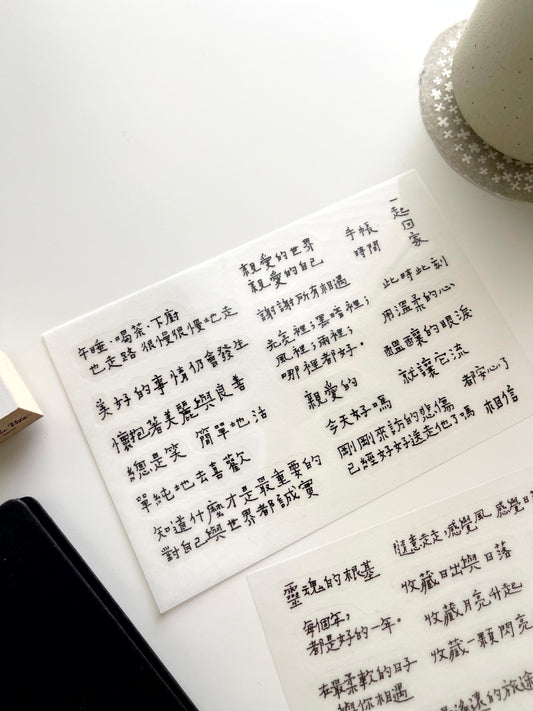 親愛的世界
親愛的自己
手帳
時間
一起回家
午睡·喝茶·下廚
也走路 很慢很慢地走
謝謝所有相遇
此時此刻
美好的事情仍會發生
光亮裡；黑暗裡；
風裡；雨裡；
哪裡都好。
用溫柔的心
懷抱著美麗與良善
醞釀的眼淚
總是笑
簡單地活
親愛的
今天好嗎
就讓它流
都安心了
單純地去喜歡
剛剛來訪的悲傷
已經好好送走他了嗎
相信
知道什麼才是最重要的
對自己與世界都誠實
靈魂的根基
隨意走走，感覺風 感覺日
每個年，
都是好的一年。
收藏日出與日落
收藏月亮升起
收藏一顆閃亮
在最柔軟的日子
與你相遇
遙遠的旅途